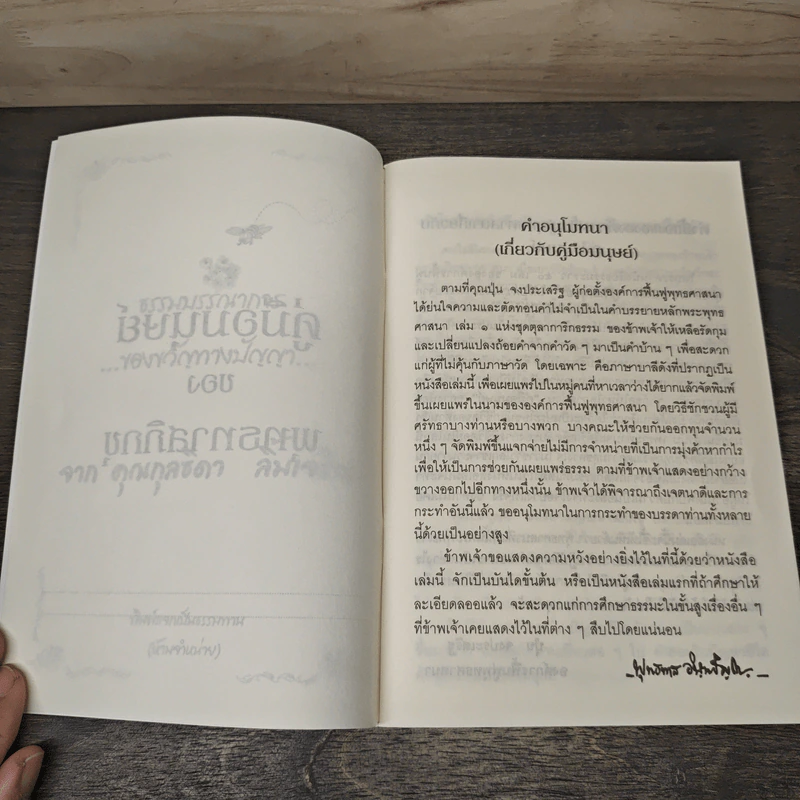 คู่มือมนุษย์
ของ
พุทธทาสภิกขุ
จาก คุณกุลธิดา
คำอนุโมทนา
(เกี่ยวกับคู่มือมนุษย์)
ตามที่คุณปุ่น จงประเสริฐ ผู้ก่อตั้งองค์การฟื้นฟูพุทธศาสนา
ได้ย่นใจความและตัดทอนคำไม่จำเป็นในคำบรรยายหลักพระพุทธ
ศาสนา เล่ม ๑ แห่งชุดตุลาการิกธรรม ของข้าพเจ้าให้เหลือรัดกุม
และเปลี่ยนแปลงถ้อยคำจากคำวัด ๆ มาเป็นคำบ้าน ๆ เพื่อสะดวก
แก่ผู้ที่ไม่คุ้นกับภาษาวัด โดยเฉพาะ คือภาษาบาลีดังที่ปรากฏเป็น
หนังสือเล่มนี้ เพื่อเผยแพร่ไปในหมู่คนที่หาเวลาว่างได้ยากแล้วจัดพิมพ์
ขึ้นเผยแพร่ในนามขององค์การฟื้นฟูพุทธศาสนา โดยวิธีชักชวนผู้มี
ศรัทธาบางท่านหรือบางพวก บางคณะให้ช่วยกันออกทุนจำนวน
หนึ่ง ๆ จัดพิมพ์ขึ้นแจกจ่ายไม่มีการจำหน่ายที่เป็นการมุ่งค้าหากำไร
เพื่อให้เป็นการช่วยกันเผยแพร่ธรรม ตามที่ข้าพเจ้าแสดงอย่างกว้าง
ขวางออกไปอีกทางหนึ่งนั้น ข้าพเจ้าได้พิจารณาถึงเจตนาดีและการ
กระทำอันนี้แล้ว ขออนุโมทนาในการกระทำของบรรดาท่านทั้งหลาย
นี้ด้วยเป็นอย่างสูง
ข้าพเจ้าขอแสดงความหวังอย่างยิ่งไว้ในที่นี้ด้วยว่าหนังสือ
เล่มนี้ จักเป็นบันไดขั้นต้น หรือเป็นหนังสือเล่มแรกที่ถ้าศึกษาให้
ละเอียดลออแล้ว จะสะดวกแก่การศึกษาธรรมะในขั้นสูงเรื่องอื่น ๆ
ที่ข้าพเจ้าเคยแสดงไว้ในที่ต่าง ๆ สืบไปโดยแน่นอน
พุทธทาส อินทปัญโญ